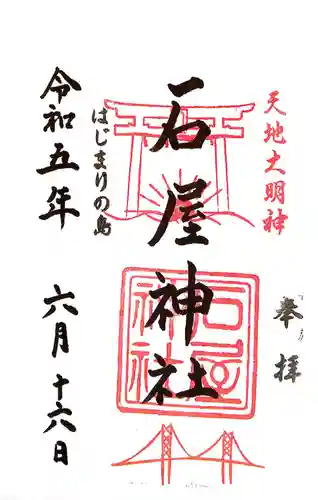 天地大明神
奉拝
石屋神社
石屋神社
はじまりの島
令和五年 六月十六日